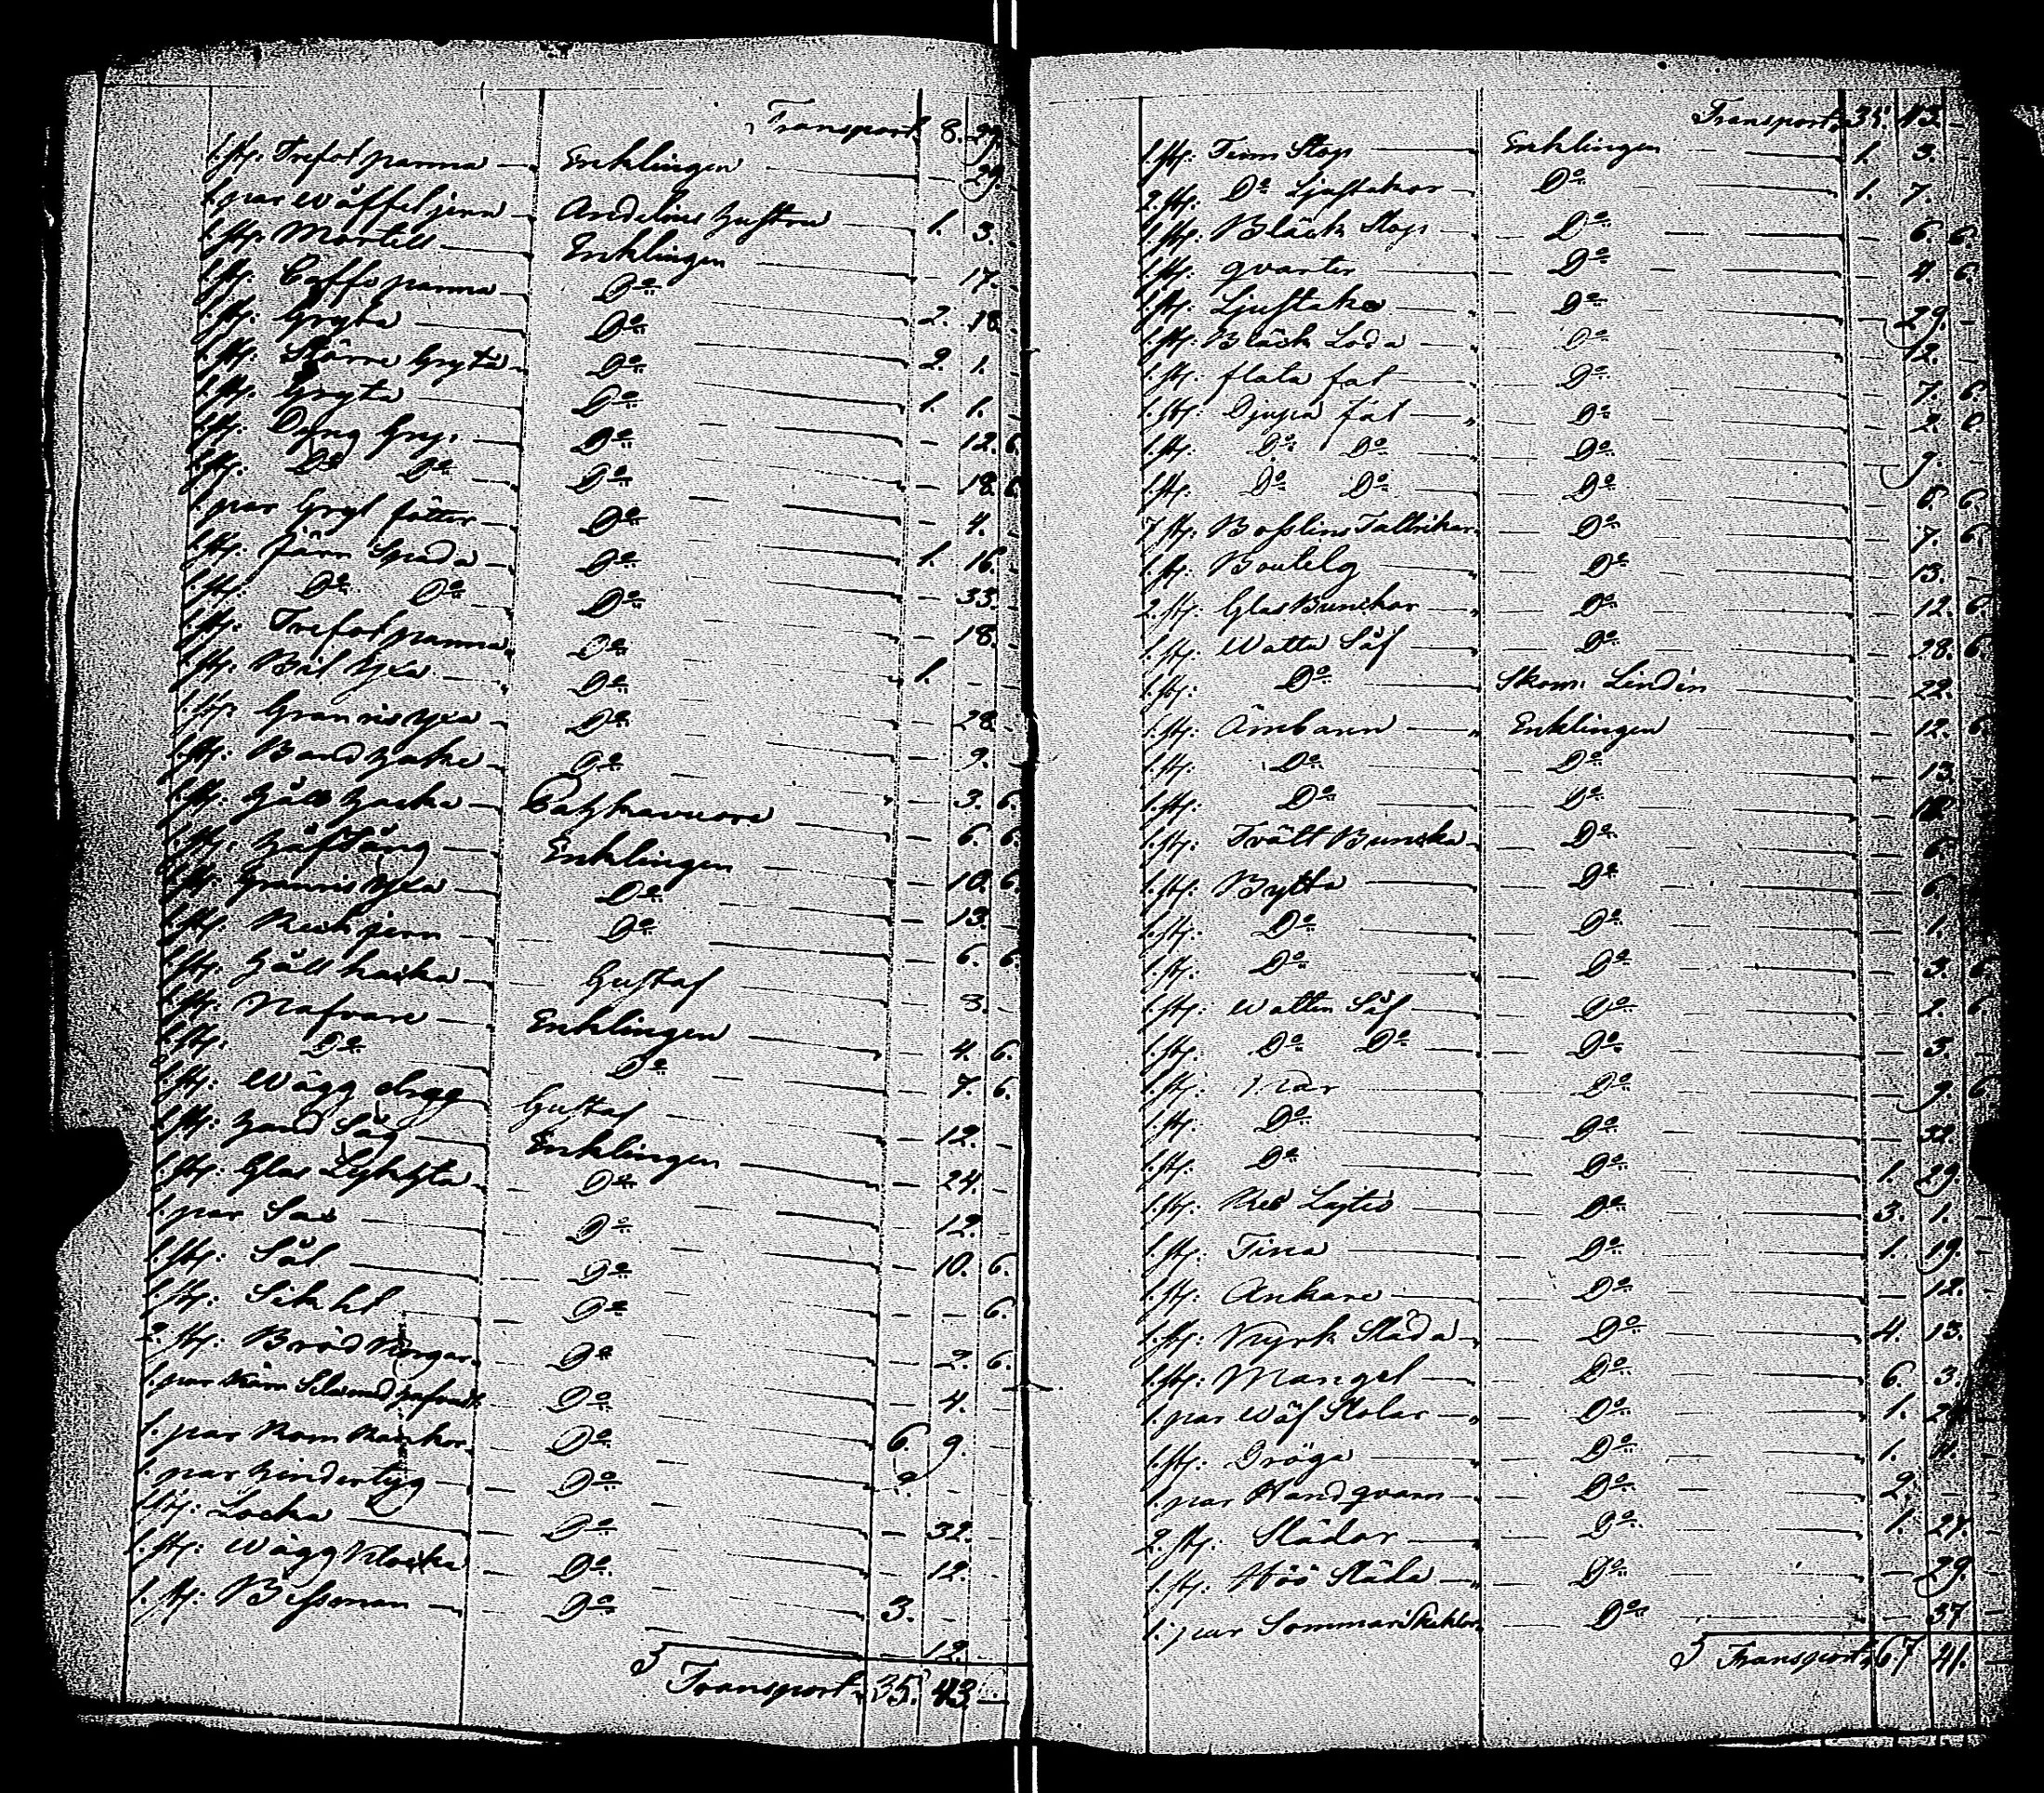 Transport 8. 29.
1. st: Trefot panna Enklingen — 29.
1. par wåffel jern Andelius hustru 1. 3.
1. st: Mortell Enklingen — 17.
1. st: Caffe panna Do 2. 18.
1. st: Gryta Do 2. 1.
1. st: Större Gryta Do 1. 1.
1. st: Gryta Do — 12. 6.
1. st: Dyng Do — 18. 6.
1. st: Do Do Do — 4.
1. par Gryt fötter Do 1. 16.
1. st: Järn Spada Do — 33.
1. st: Do Do Do — 18.
1. st: Trefot panna Do 1. — —
1. st: Bil Yxa Do — 28.
1. st: Granris yxa Do — 9.
1. st: Band hake Do — 3. 6.
1. st: Håll hacka — 6. 6.
1. st: Håftång Enklingen — 10. 6.
1. st: Granris Yxa Do — 13.
1. st: jern Do — 6. 6.
1. st: Håll hacka Gustaf — 3.
1. st: Nafvare Enklingen — 4. 6.
1. st: Do Do — 7. 6.
1. st: Wägg Gustaf — 12.
1. st: Hand Såg Enklingen — 24.
1. st: Glas Lykta Do — 12.
1. par Sax Do — 10. 6.
1. st: Såll Do — — 6.
1. st: Sikt Do — 2. 6.
2. st: Bröd Korgar Do — 4.
1. par Do 6. 9.
1. par Do 2. — —
1. par Hindertyg Do — 32.
1. st: Locka Do — 12.
1. st: Wägg Klocka Do 3. — —
1. st: Bessman Do — 12.
Transport 35. 43 —
Transport 35. 43 —
1. st: Tenn Stop Enklingen 1. 3.
2. st: Do Ljustakar Do 1. 7.
1. st: Bläck Stop Do — 6. 6.
1. st: qvarter Do — 4. 6.
1. st: Ljustake Do — 29. —
1. st: Bläck Låda Do — 12.
1. st: flata fat Do — 7. 6.
1. st: Djupa fat Do — 2.
1. st: Do Do Do — 9. —
1. st: Do Do Do — 6. 6.
7 st: Posslins Tallrikar Do — 7. 6.
1. st: Boutelg Do — 13. —
2. st: Glas Bunckar Do — 12. 6.
1. st: Watta Så Do — 28. 6.
1. st: Do Skom: Lindin — 22.
1. st: Ämbarn Enklingen — 12. 6.
1. st: Do Do — 13
1. st: Do Do — 12
1. st: Tvätt Buncka Do — 6.
1. st: Bytta Do — 6.
1. st: Do Do — 1.
1. st: Do Do — 3. 6
1. st: Watten Så Do — 2. 6
1. st: Do Do Do — 3.
1. st: Kar Do — 9. 6
1. st: Do Do — 32.
1. st: Do Do 1. 29.
1. st: Do 3. 1. —
1. st: Tina Do 1. 19.
1. st: Ankare Do — 12.
1. st: Kyrk Släda Do 4. 13.
1. st: Mangel Do 6. 3.
1. par Wäf Stolar Do 1.
1. st: Dröga Do 1.
1. par Handqvarn Do 2. —
2. st: Slädar Do 1. 27.
1. st: Höö Släda Do — 29.
1. par Do — 37 —
Transport 67 41. —